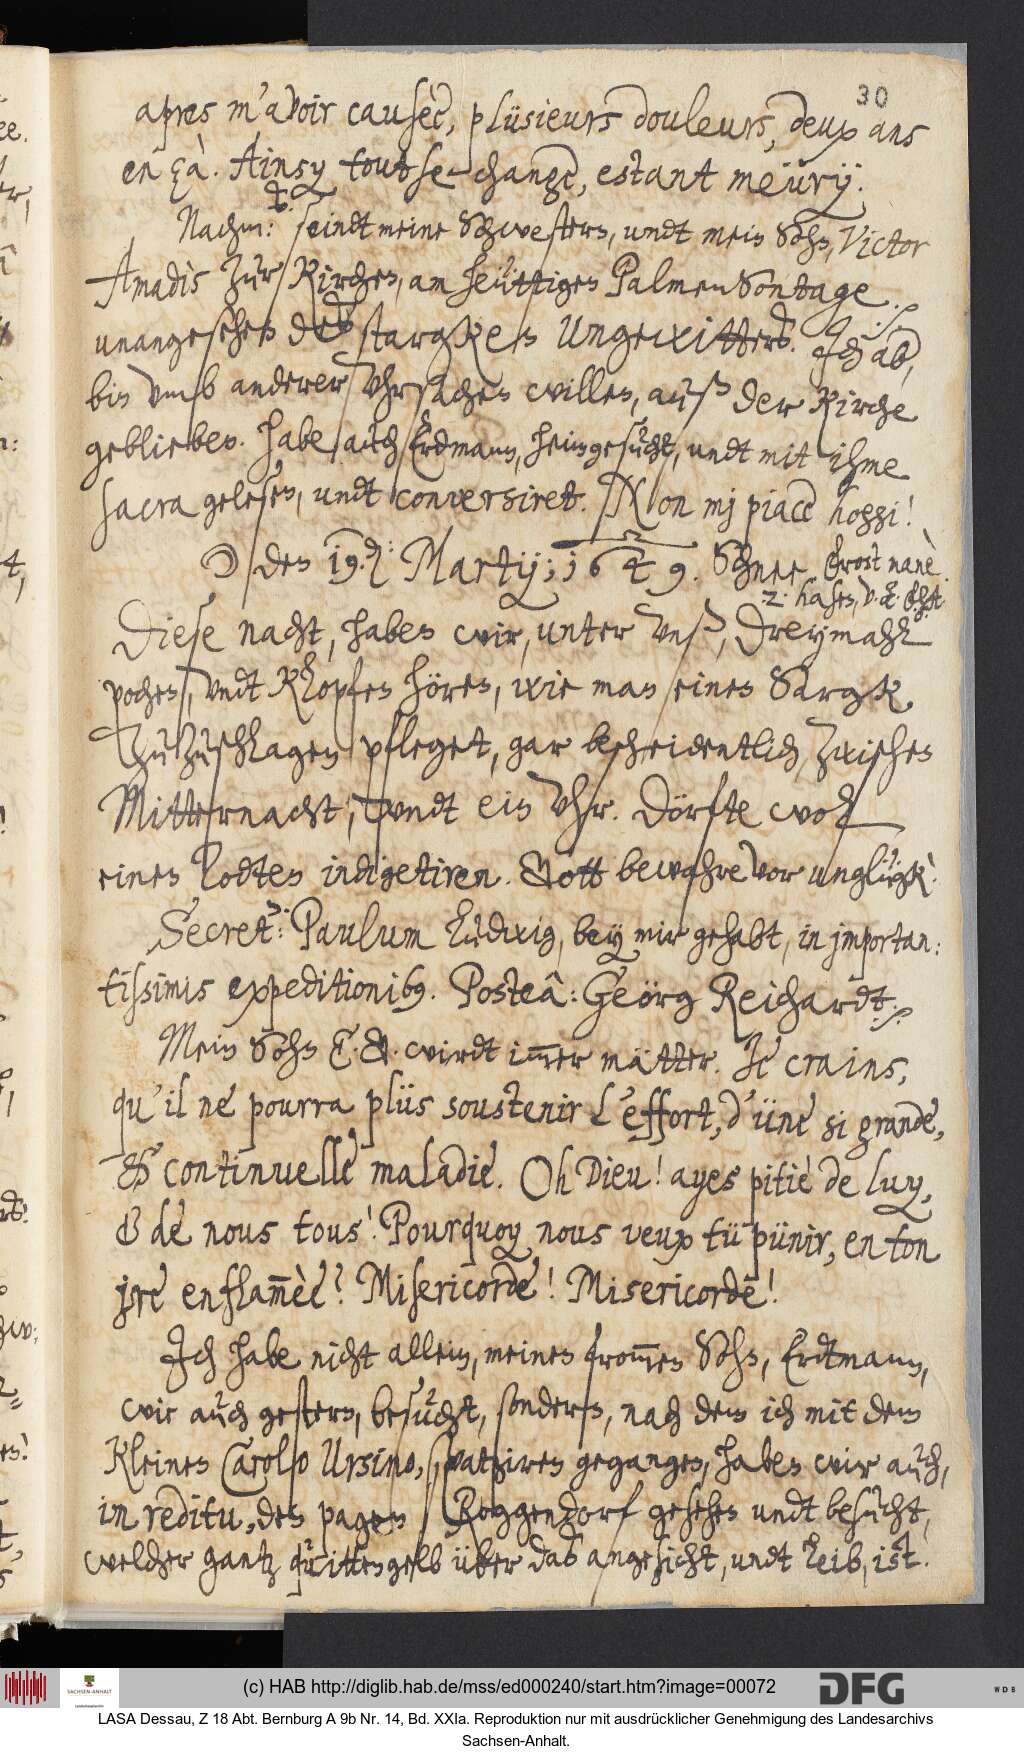 30
apres m'avoir causèè, plüsieurs douleurs, deux ans
en çà. Ainsy tout se change, estant meüry.
Nachm: seindt meine Schwestern, undt mein Sohn, Victor
Amadis zur Kirchen, am heüttigen Palmen Sontage
unangesehen deß stargken Ungewitters. Ich ab,
bin vmb anderer Vhrsachen willen, auß der Kirche
geblieben. Habe auch Erdmann, heimgesucht, undt mit ihme
sacra gelesen, undt conversiret. Non mj piace hoggi!
☽ den 19. Martij; 1649. Schnee Frost manè.
2 hasen, v. L.
Diese nacht, haben wir, unter vnß, dreymahl
pochen, vndt Klopfen hören, wie man einen Sargk
zuzuschlagen pfleget, gar bescheidentlich zwischen
Mitternacht, vndt ein Vhr. Dörfte wol
einen Todten indigetiren. Gott bewahre vor unglügk!
Secret: Paulum Ludwig, bey mir gehabt, in jmportan:
tissimis expeditionib9. Posteâ: Geörg Reichardt.
Mein Sohn E. G. wirdt im̅er mätter. Je crains,
qu'il ne pourra plüs soustenir l'effort, d'üne si grande,
& continuelle maladie. Oh Dieu! ayes pitiè de luy,
& de nous tous! Pourquoy nous veux tü pünir, en ton
jre enflam̅èe? Misericorde! Misericorde!
Ich habe nicht allein, meinen from̅en Sohn, Erdtmann,
wie auch gestern, besucht, sondern, nach dem ich mit dem
Kleinen Carolo Ursino, spatziren gegangen, haben wir auch,
in reditu, den pagen Roggendorf gesehen undt besucht,
welcher gantz quittengelb über das angesicht, undt Leib, ist.
(c) HAB http://diglib.hab.de/mss/ed000240/start.htm?image=00072
SACHSEN-ANHALT
DFG
WDB
LASA Dessau, Z 18 Abt. Bernburg A 9b Nr. 14, Bd. XXIa. Reproduktion nur mit ausdrücklicher Genehmigung des Landesarchivs
Sachsen-Anhalt.